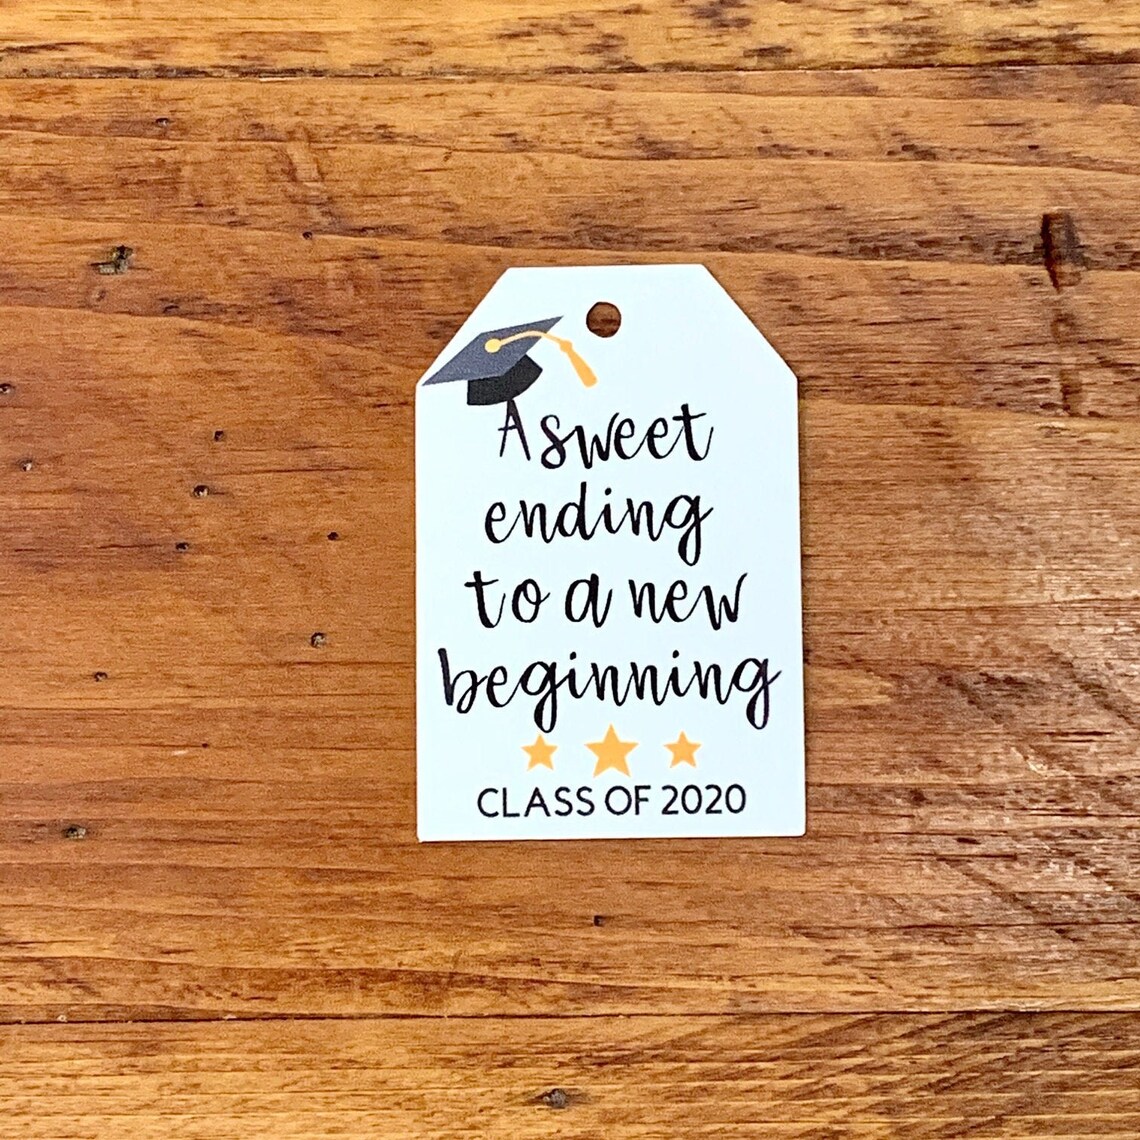 A sweet
ending
to a new
beginning
CLASS OF 2020